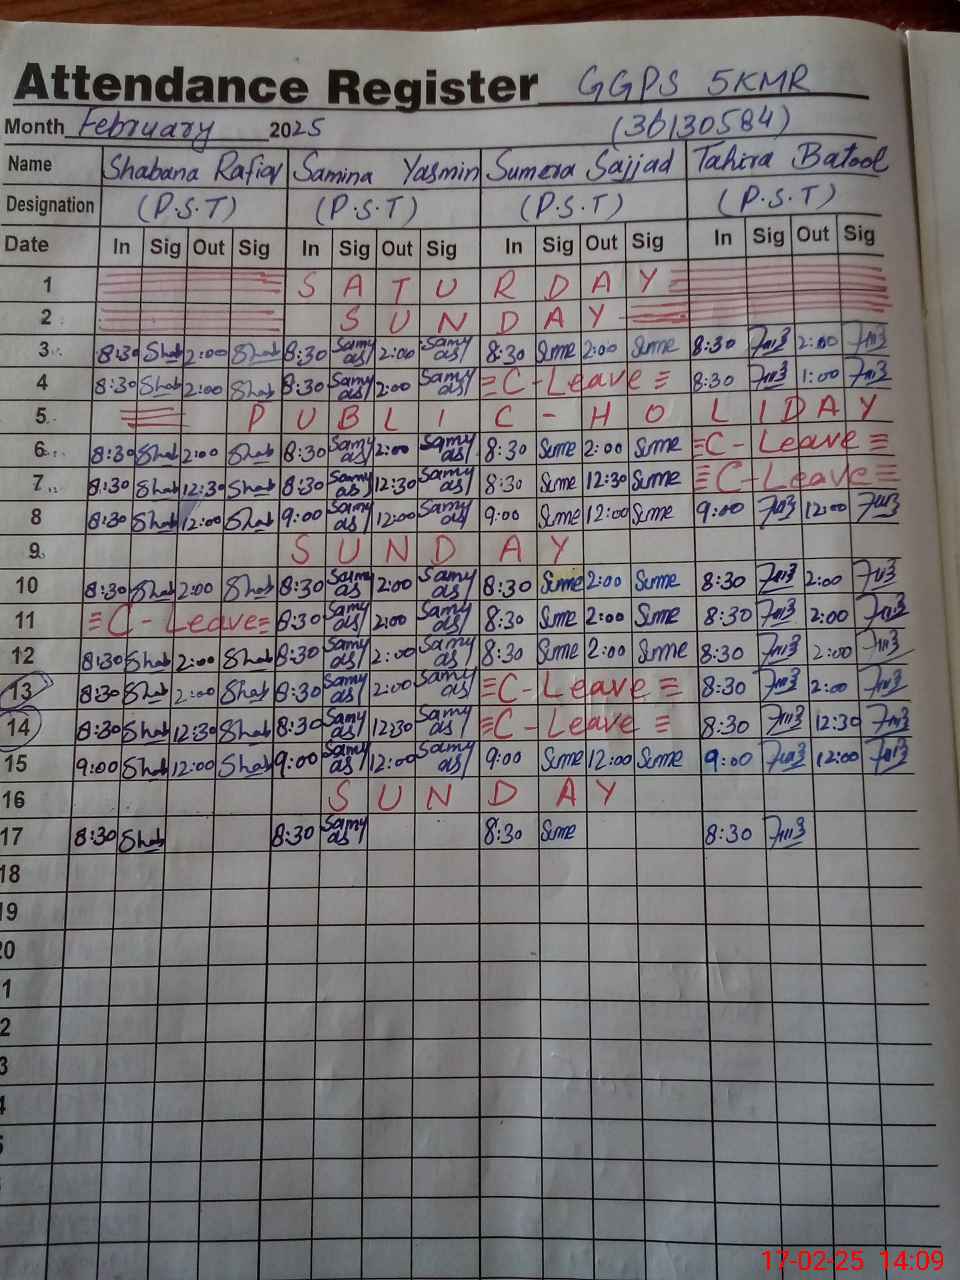 Attendance Register GGPS 5KMR
Month February 2025 (36130584)
Name Shabana Rafiq Samina Yasmin Sumera Sajjad Tahira Batool
Designation (P.S.T) (P.S.T) (P.S.T) (P.S.T)
Date In Sig Out Sig In Sig Out Sig In Sig Out Sig In Sig Out Sig
1 SATURDAY
2 SUNDAY
3 8:30 Shab 2:00 Shab 8:30 Samy 2:00 Samy 8:30 Sume 2:00 Sume 8:30 2:00
4 8:30 Shab 2:00 Shab 8:30 Samy 2:00 Samy C-Leave 8:30 1:00
5 PUBLIC-HOLIDAY
6 8:30 Shab 2:00 Shab 8:30 Samy 2:00 Samy 8:30 Sume 2:00 Sume C-Leave
7 8:30 Shab 12:30 Shab 8:30 Samy 12:30 Samy 8:30 Sume 12:30 Sume C-Leave
8 8:30 Shab 12:00 Shab 9:00 Samy 12:00 Samy 9:00 Sume 12:00 Sume 9:00 12:00
9 SUNDAY
10 8:30 Shab 2:00 Shab 8:30 Samy 2:00 Samy 8:30 Sume 2:00 Sume 8:30 2:00
11 C-Leave 8:30 Samy 2:00 Samy 8:30 Sume 2:00 Sume 8:30 2:00
12 8:30 Shab 2:00 Shab 8:30 Samy 2:00 Samy 8:30 Sume 2:00 Sume 8:30 2:00
13 8:30 Shab 2:00 Shab 8:30 Samy 2:00 Samy C-Leave 8:30 2:00
14 8:30 Shab 12:30 Shab 8:30 Samy 12:30 Samy C-Leave 8:30 12:30
15 9:00 Shab 12:00 Shab 9:00 Samy 12:00 Samy 9:00 Sume 12:00 Sume 9:00 12:00
16 SUNDAY
17 8:30 Shab 8:30 Samy 8:30 Sume 8:30
18
19
20
1
2
3
4
17-02-25 14:09